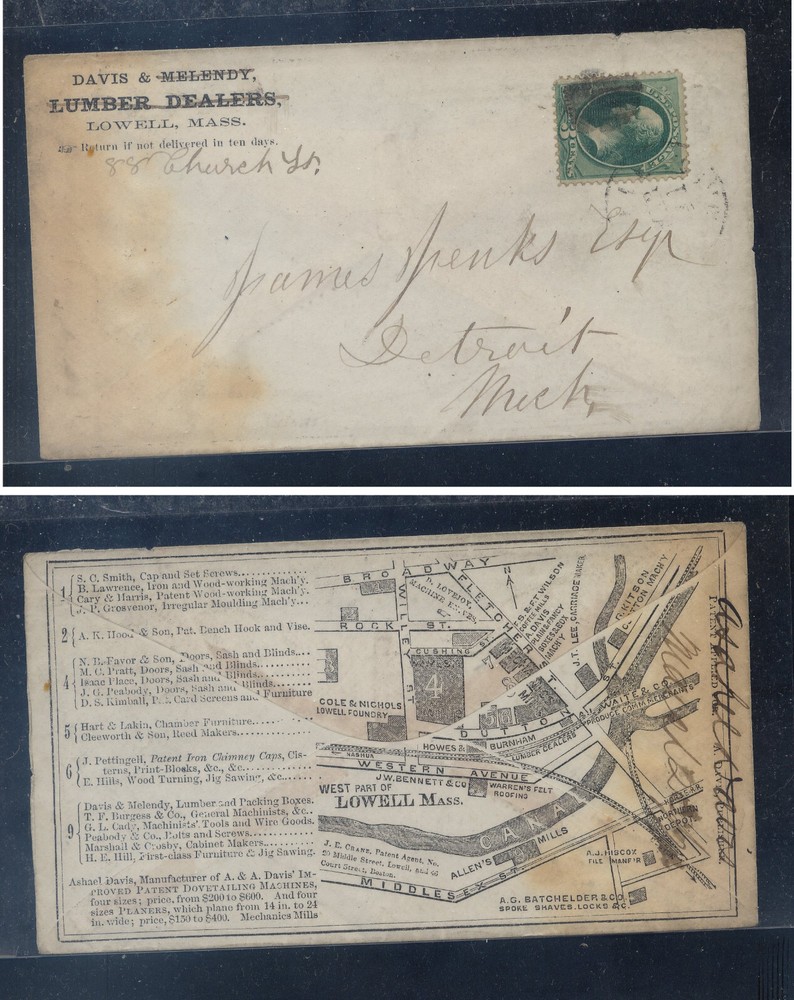 DAVIS & MELENDY,
LUMBER DEALERS,
LOWELL, MASS.
Return if not delivered in ten days.
88 Church St.
James Jenks Esqr
Detroit
Mich.
1 { S. C. Smith, Cap and Set Screws
B. Lawrence, Iron and Wood-working Mach'y.
Cary & Harris, Patent Wood-working Mach'y.
J. P. Grosvenor, Irregular Moulding Mach'y.
2 { A. K. Hood & Son, Pat. Bench Hook and Vise.
4 { N. B. Favor & Son, Doors, Sash and Blinds.
M. C. Pratt, Doors, Sash and Blinds.
Isaac Place, Doors, Sash and Blinds.
J. G. Peabody, Doors, Sash and Blinds.
D. S. Kimball, Card Screens and Furniture
5 { Hart & Lakin, Chamber Furniture.
Cheeworth & Son, Reed Makers.
6 { J. Pettingell, Patent Iron Chimney Caps, Cis-
terns, Print-Blocks, &c., &c.
E. Hills, Wood Turning, Jig Sawing, &c.
9 { Davis & Melendy, Lumber and Packing Boxes.
T. F. Burgess & Co., General Machinists, &c.
G. L. Cady, Machinists' Tools and Wire Goods.
Peabody & Co., Bolts and Screws.
Marshall & Crosby, Cabinet Makers.
H. E. Hill, First-class Furniture & Jig Sawing.
Ashael Davis, Manufacturer of A. & A. Davis' IM-
PROVED PATENT DOVETAILING MACHINES,
four sizes; price, from $200 to $600. And four
sizes PLANERS, which plane from 14 in. to 24
in. wide; price, $150 to $400. Mechanics Mills
BROADWAY
WILLEY ST.
FLETCH
D. LOVEJOY,
MACHINE KNIVES
N
ROCK ST.
CUSHING ST.
4
5 6
COLE & NICHOLS
LOWELL FOUNDRY
DUTTON ST.
S. & F. WILSON
A. DAVIS
J.T. LEE, CARRIAGE MAKER
KITSON
COTTON MACH'Y
WAITE & CO.
PRODUCE COM. MERCHANTS
HOWES & BURNHAM
LUMBER DEALERS
NASHUA
WESTERN AVENUE
J.W. BENNETT & CO
WARREN'S FELT
ROOFING
WEST PART OF
LOWELL MASS.
CANAL
J. E. CRANE, Patent Agent, No.
Middle Street, Lowell, and
Court Street, Boston.
ALLEN'S MILLS
MIDDLESEX ST.
A.J. HISCOX
FILE MANF'R
NORTHERN
DEPOT
A.G. BATCHELDER & CO.
SPOKE SHAVES, LOCKS &C.
Asahel Davis